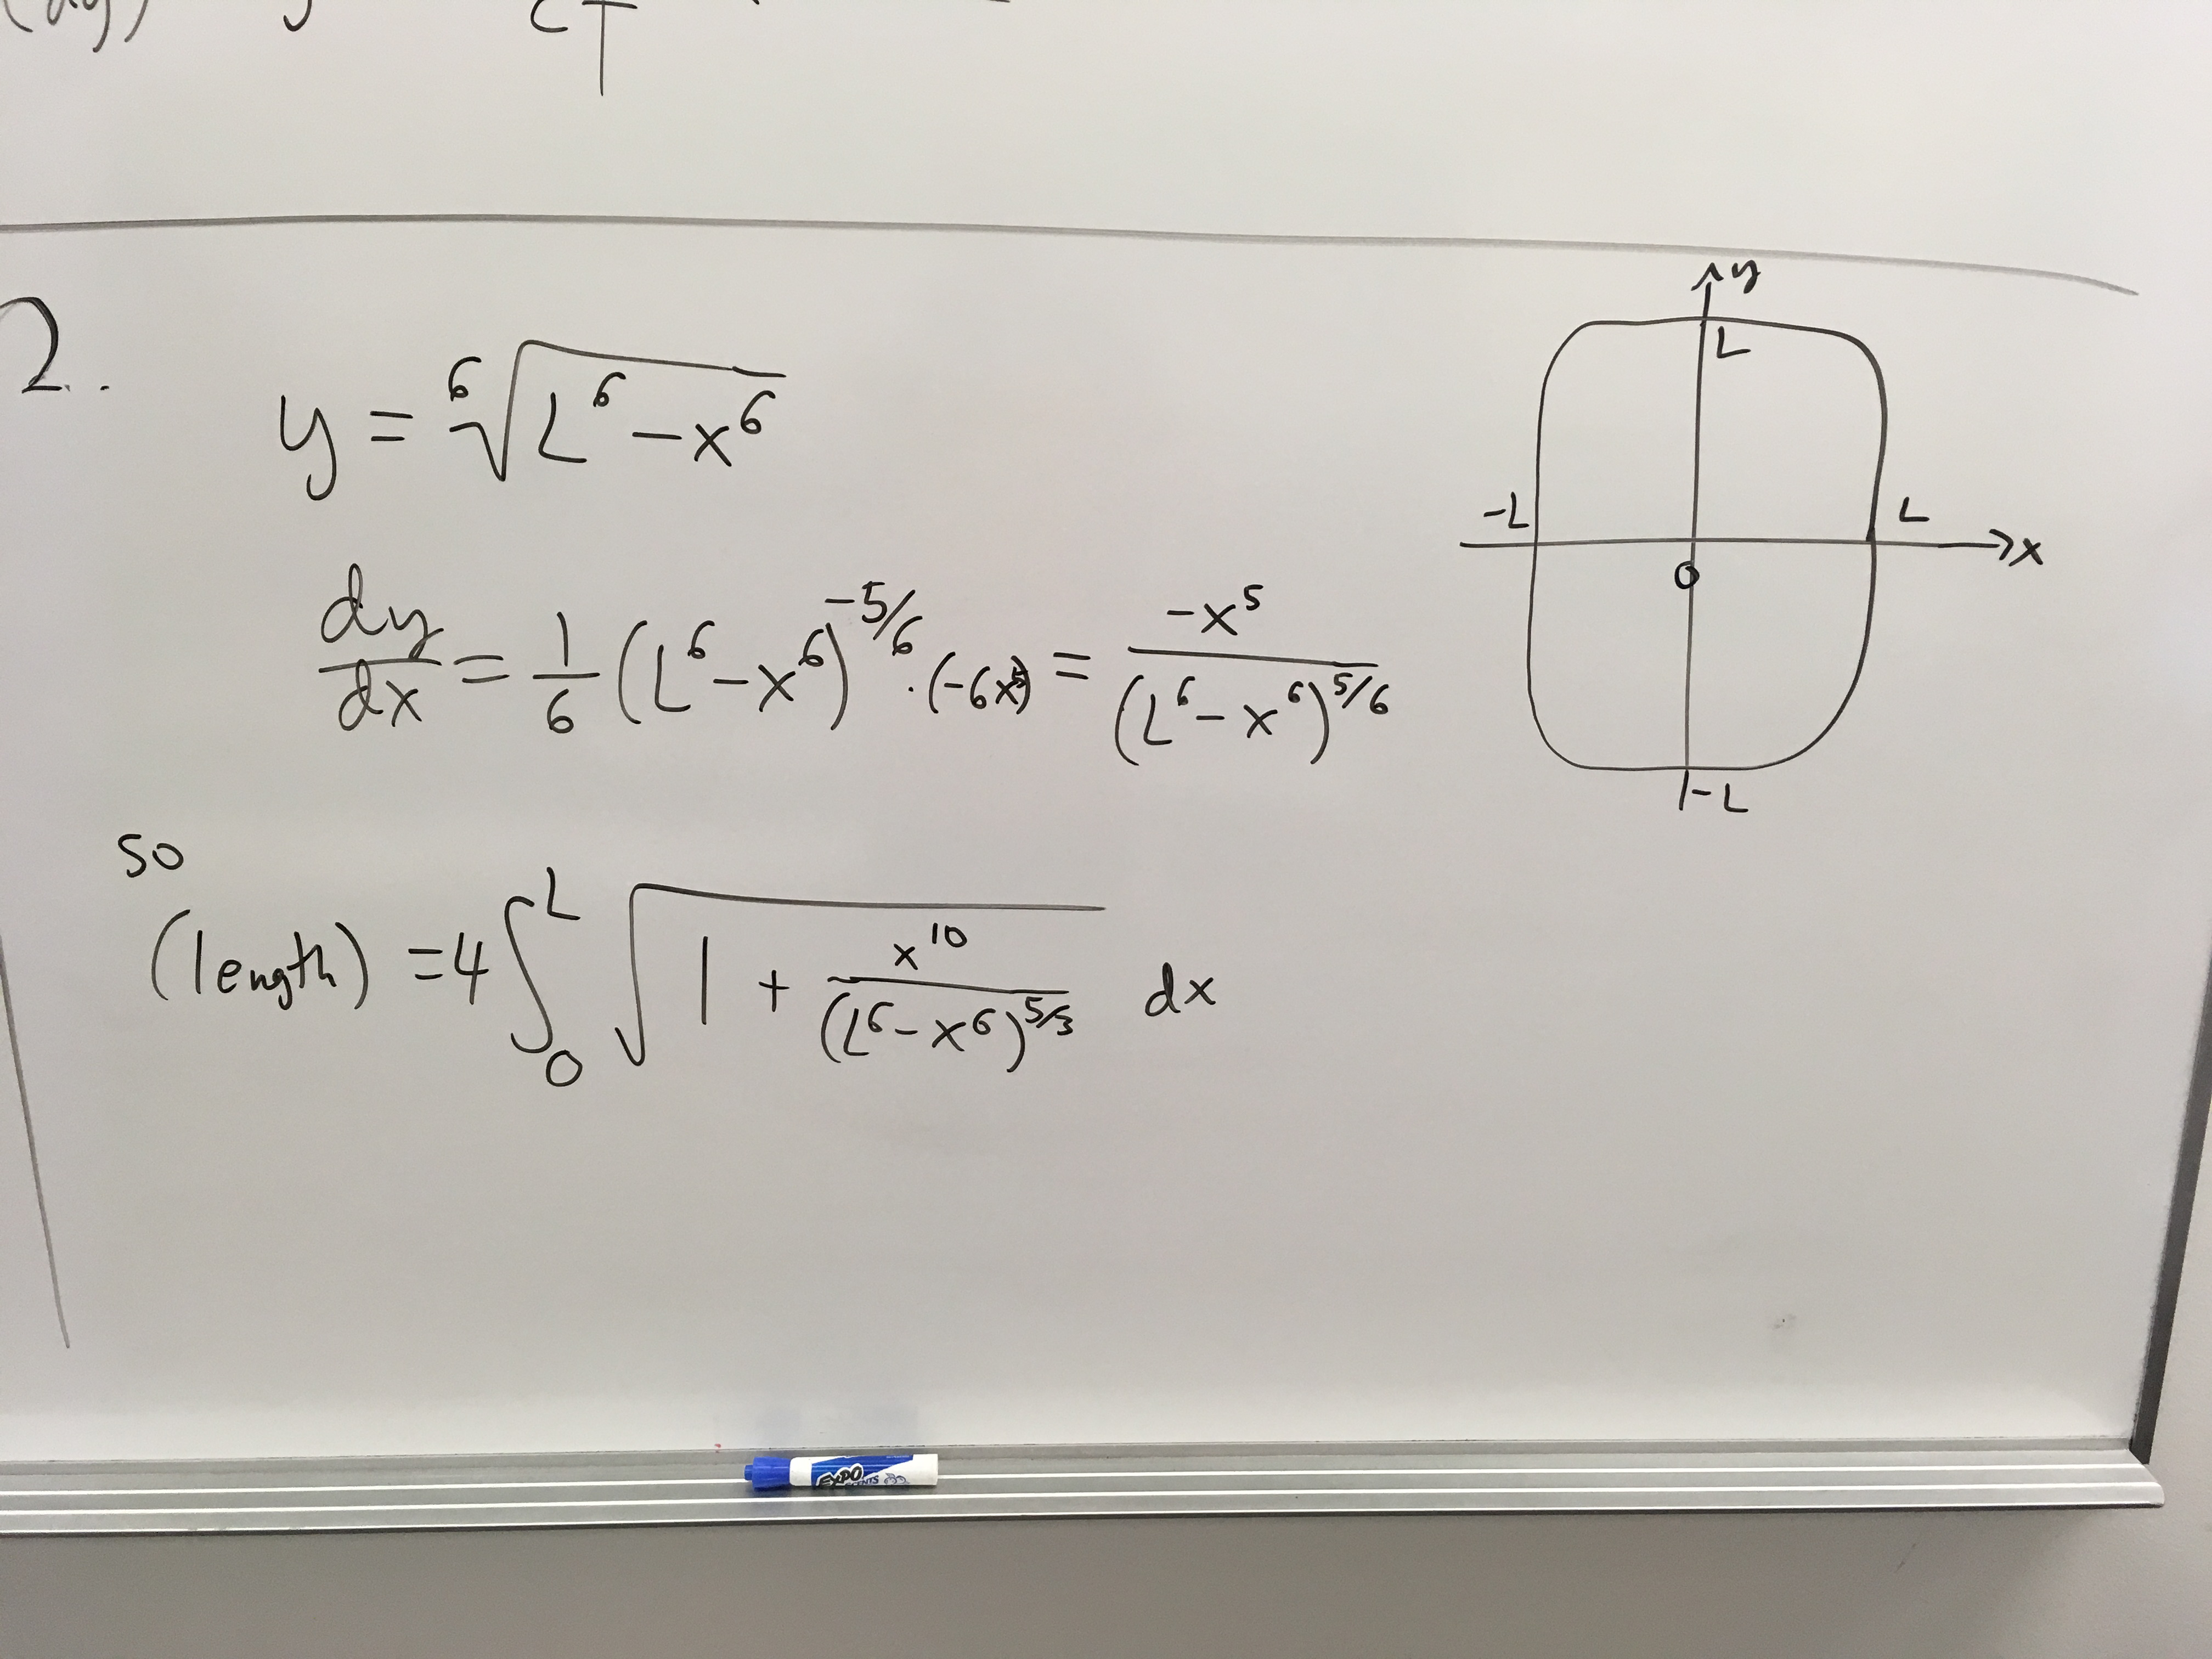 2.
y = ⁶√(L⁶ − x⁶)
dy/dx = 1/6 (L⁶ − x⁶)^(−5/6) · (−6x⁵) = −x⁵/(L⁶ − x⁶)^(5/6)
so
(length) = 4 ∫₀ᴸ √(1 + x¹⁰/(L⁶ − x⁶)^(5/3)) dx
y
L
−L L
x
0
−L
EXPO